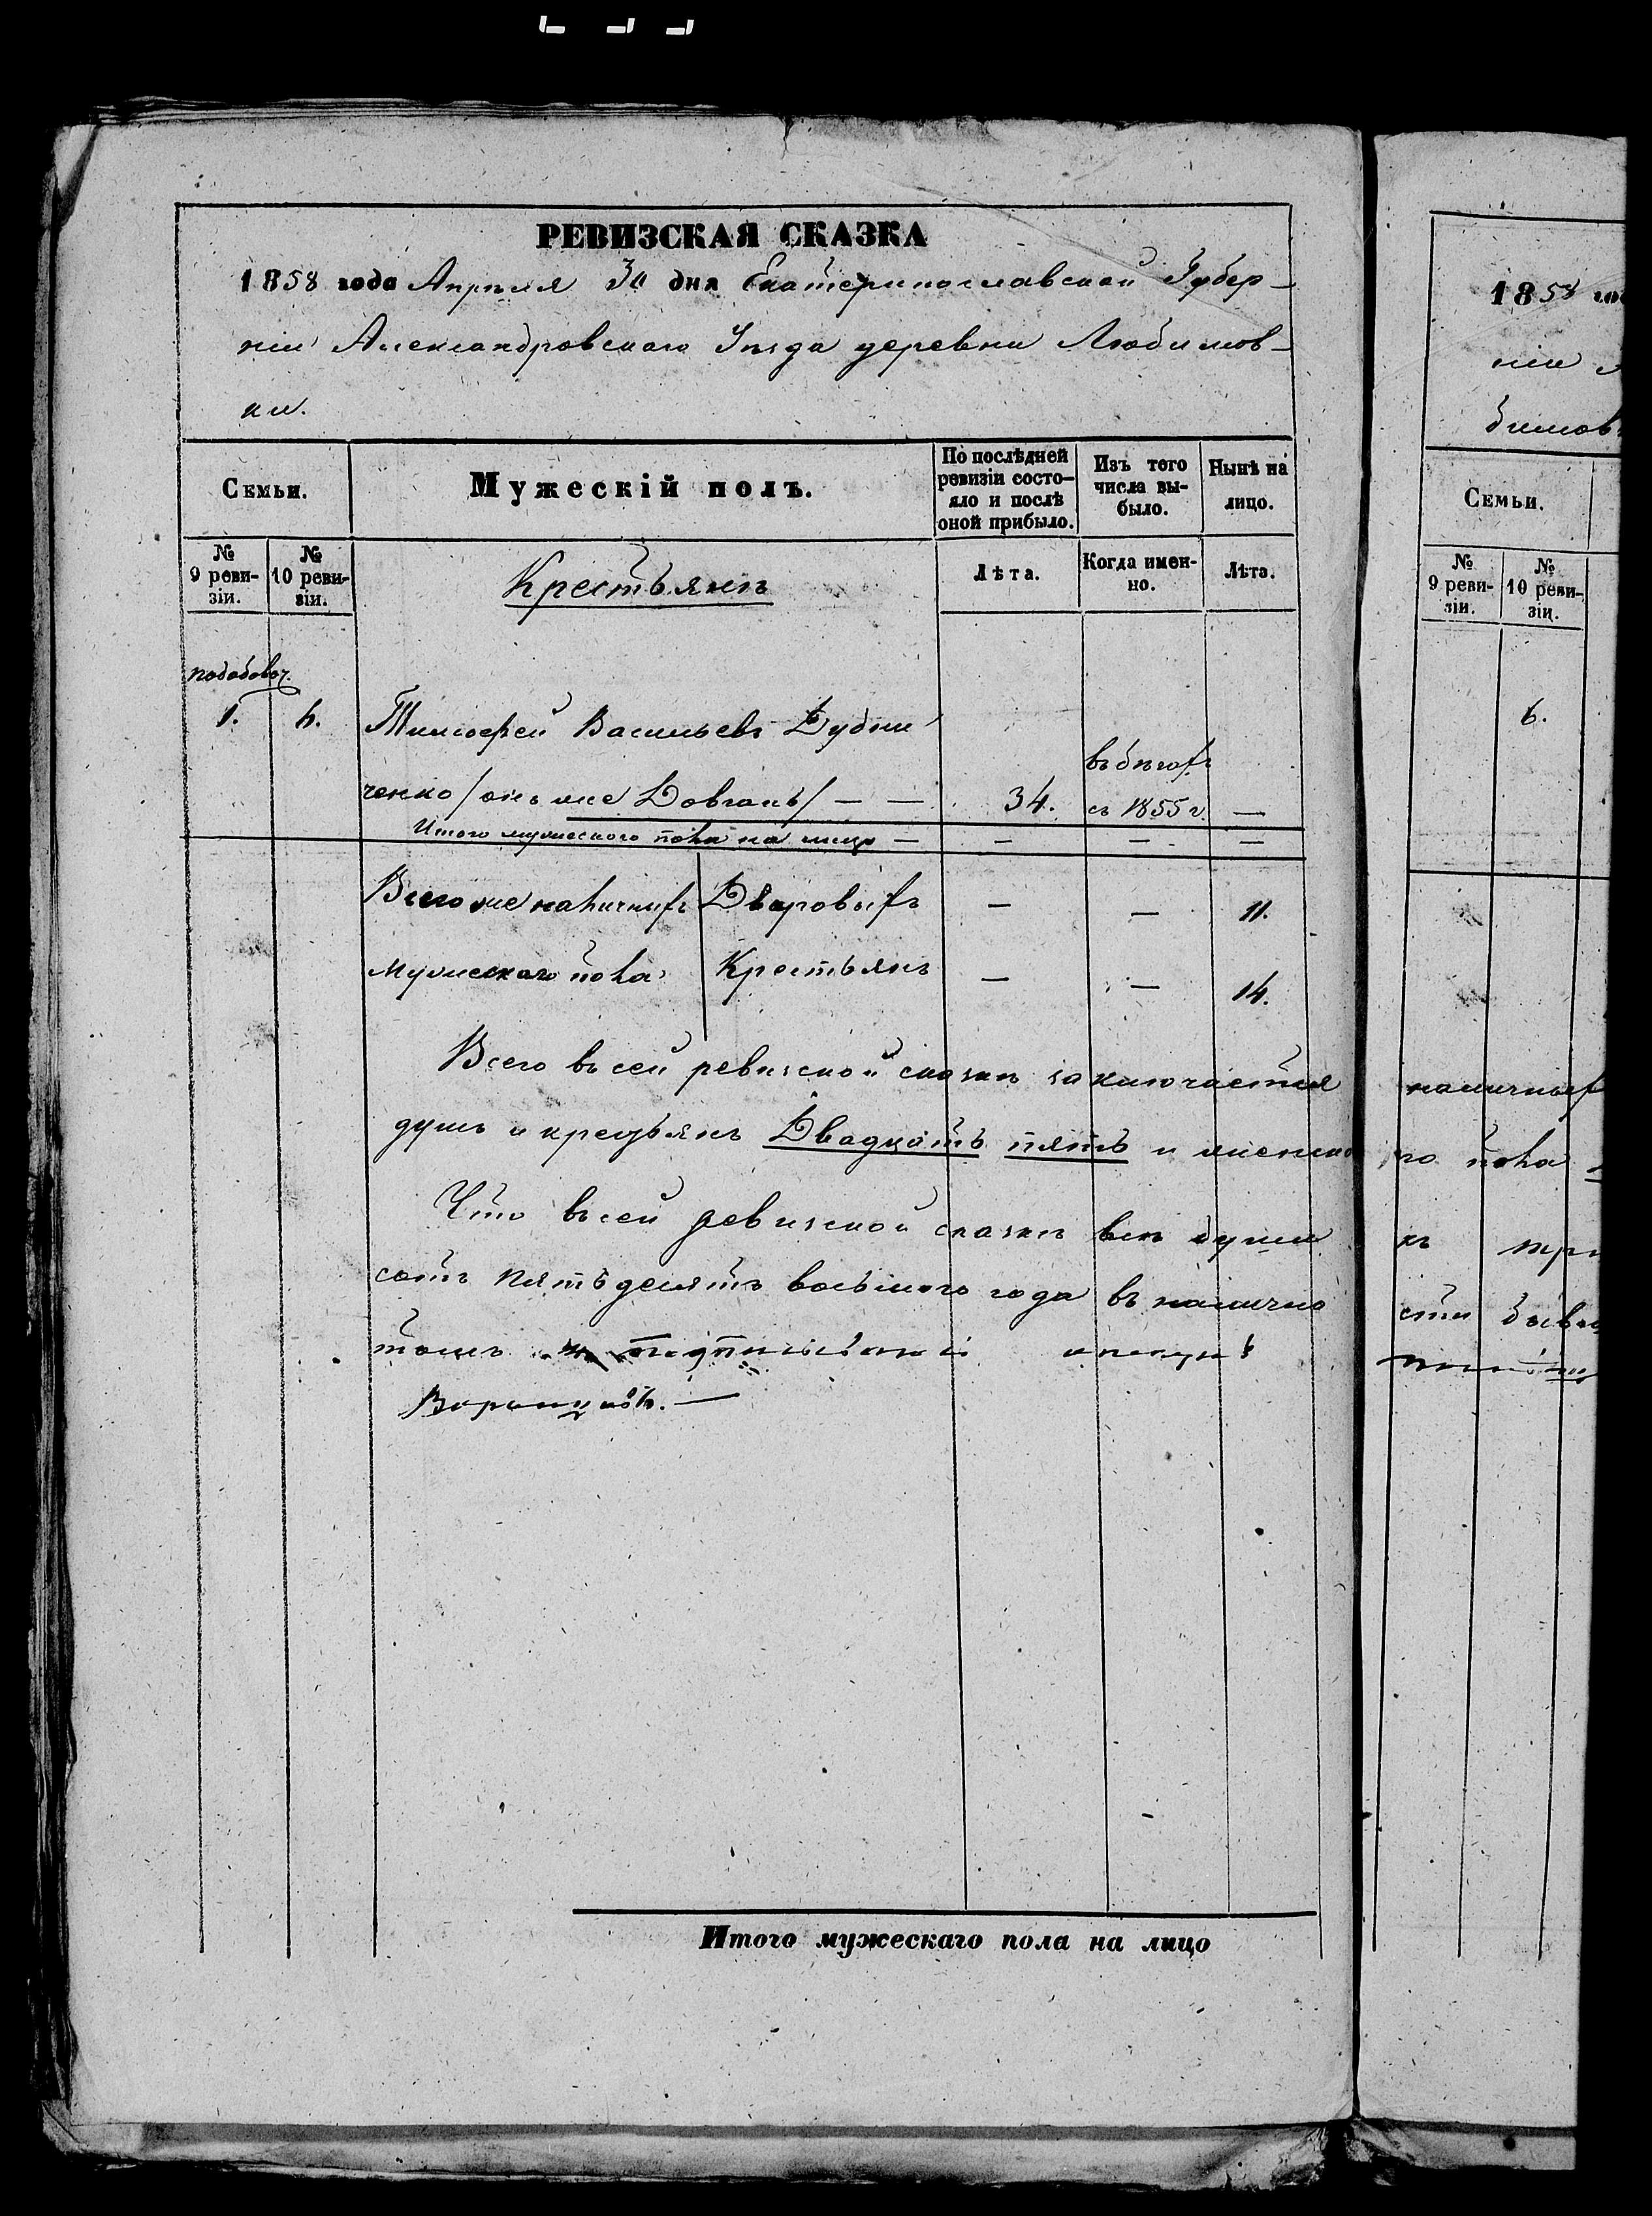 РЕВИЗСКАЯ СКАЗКА
1858 года Апрѣля 30 дня Екатеринославской Губер-
ніи Александровскаго Уѣзда деревни Любимов-
ки.
Семьи.
Мужескій полъ.
По послѣдней ревизіи состо-яло и послѣ оной прибыло.
Изъ того числа вы-было.
Нынѣ на лицо.
№ 9 реви-зіи.
№ 10 реви-зіи.
Крестьянъ
Лѣта.
Когда имен-но.
Лѣта.
1. 6. Тимофей Васильевъ Дубни
ченко /онъ же Довгань/ — — 34. въ бѣгахъ съ 1855 г. —
Итого мужескаго пола на лицо — — — —
Всего же наличныхъ Дворовыхъ — — 11.
мужескаго пола Крестьянъ — — 14.
Всего въ сей ревизской сказкѣ заключается
душъ и крестьянъ Двадцать пять и женска
Что въ сей ревизской сказкѣ всѣ души
сотъ пятьдесятъ восьмого года въ налично
томъ
Итого мужескаго пола на лицо
1858 год
ніи
бимов
Семьи.
№ 9 реви-зіи.
№ 10 реви-зіи.
6.
наличных
го пола
къ
сти